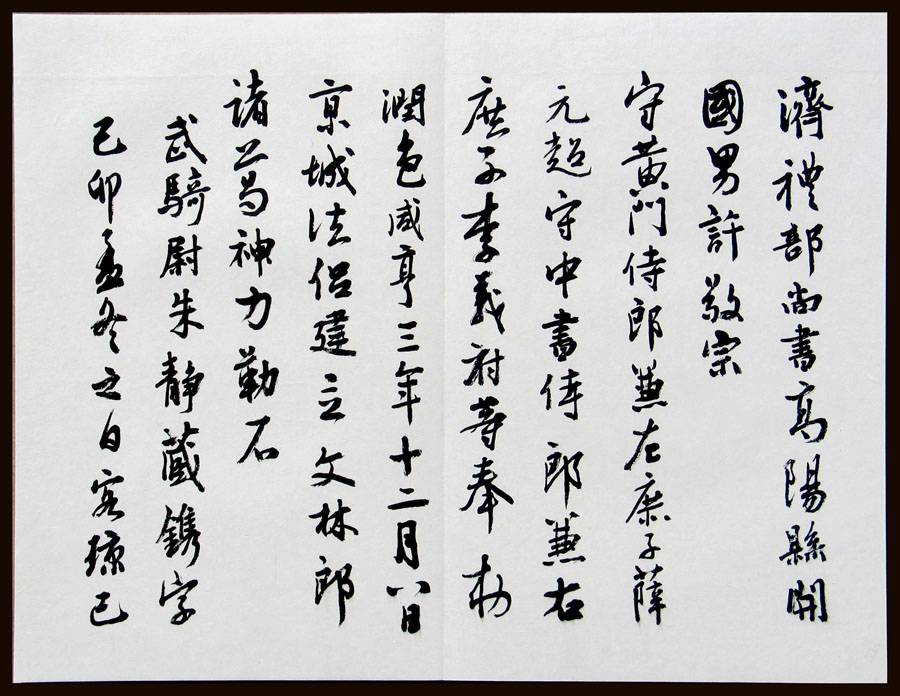 濟禮部尚書高陽縣開
國男許敬宗
守黃門侍郎兼左庶子薛
元超守中書侍郎兼右
庶子李義府等奉勅
潤色咸亨三年十二月八日
京城法侶建立文林郎
諸葛神力勒石
武騎尉朱靜藏鐫字
己卯孟冬之日客琼己